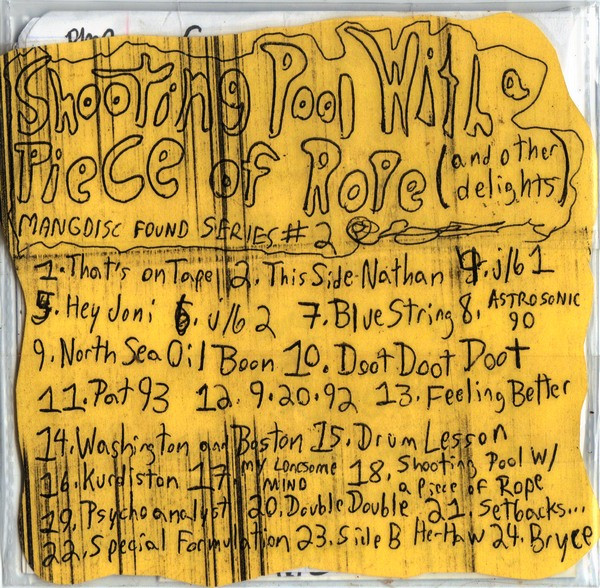 Shooting Pool With a
Piece of Rope (and other delights)
MANGDISC FOUND SERIES # 2
1. That's on Tape 2. This Side-Nathan 4. j/b 1
5. Hey Joni 6. j/b 2 7. Blue String 8. ASTROSONIC 90
9. North Sea Oil Boon 10. Doot Doot Doot
11. Pat 93 12. 9.20.92 13. Feeling Better
14. Washington and Boston 15. Drum Lesson
16. Kurdiston 17. MY LONESOME MIND 18. Shooting Pool W/ a Piece of Rope
19. Psychoanalyst 20. Double Double 21. Setbacks...
22. Special Formulation 23. Side B He-Haw 24. Bryce